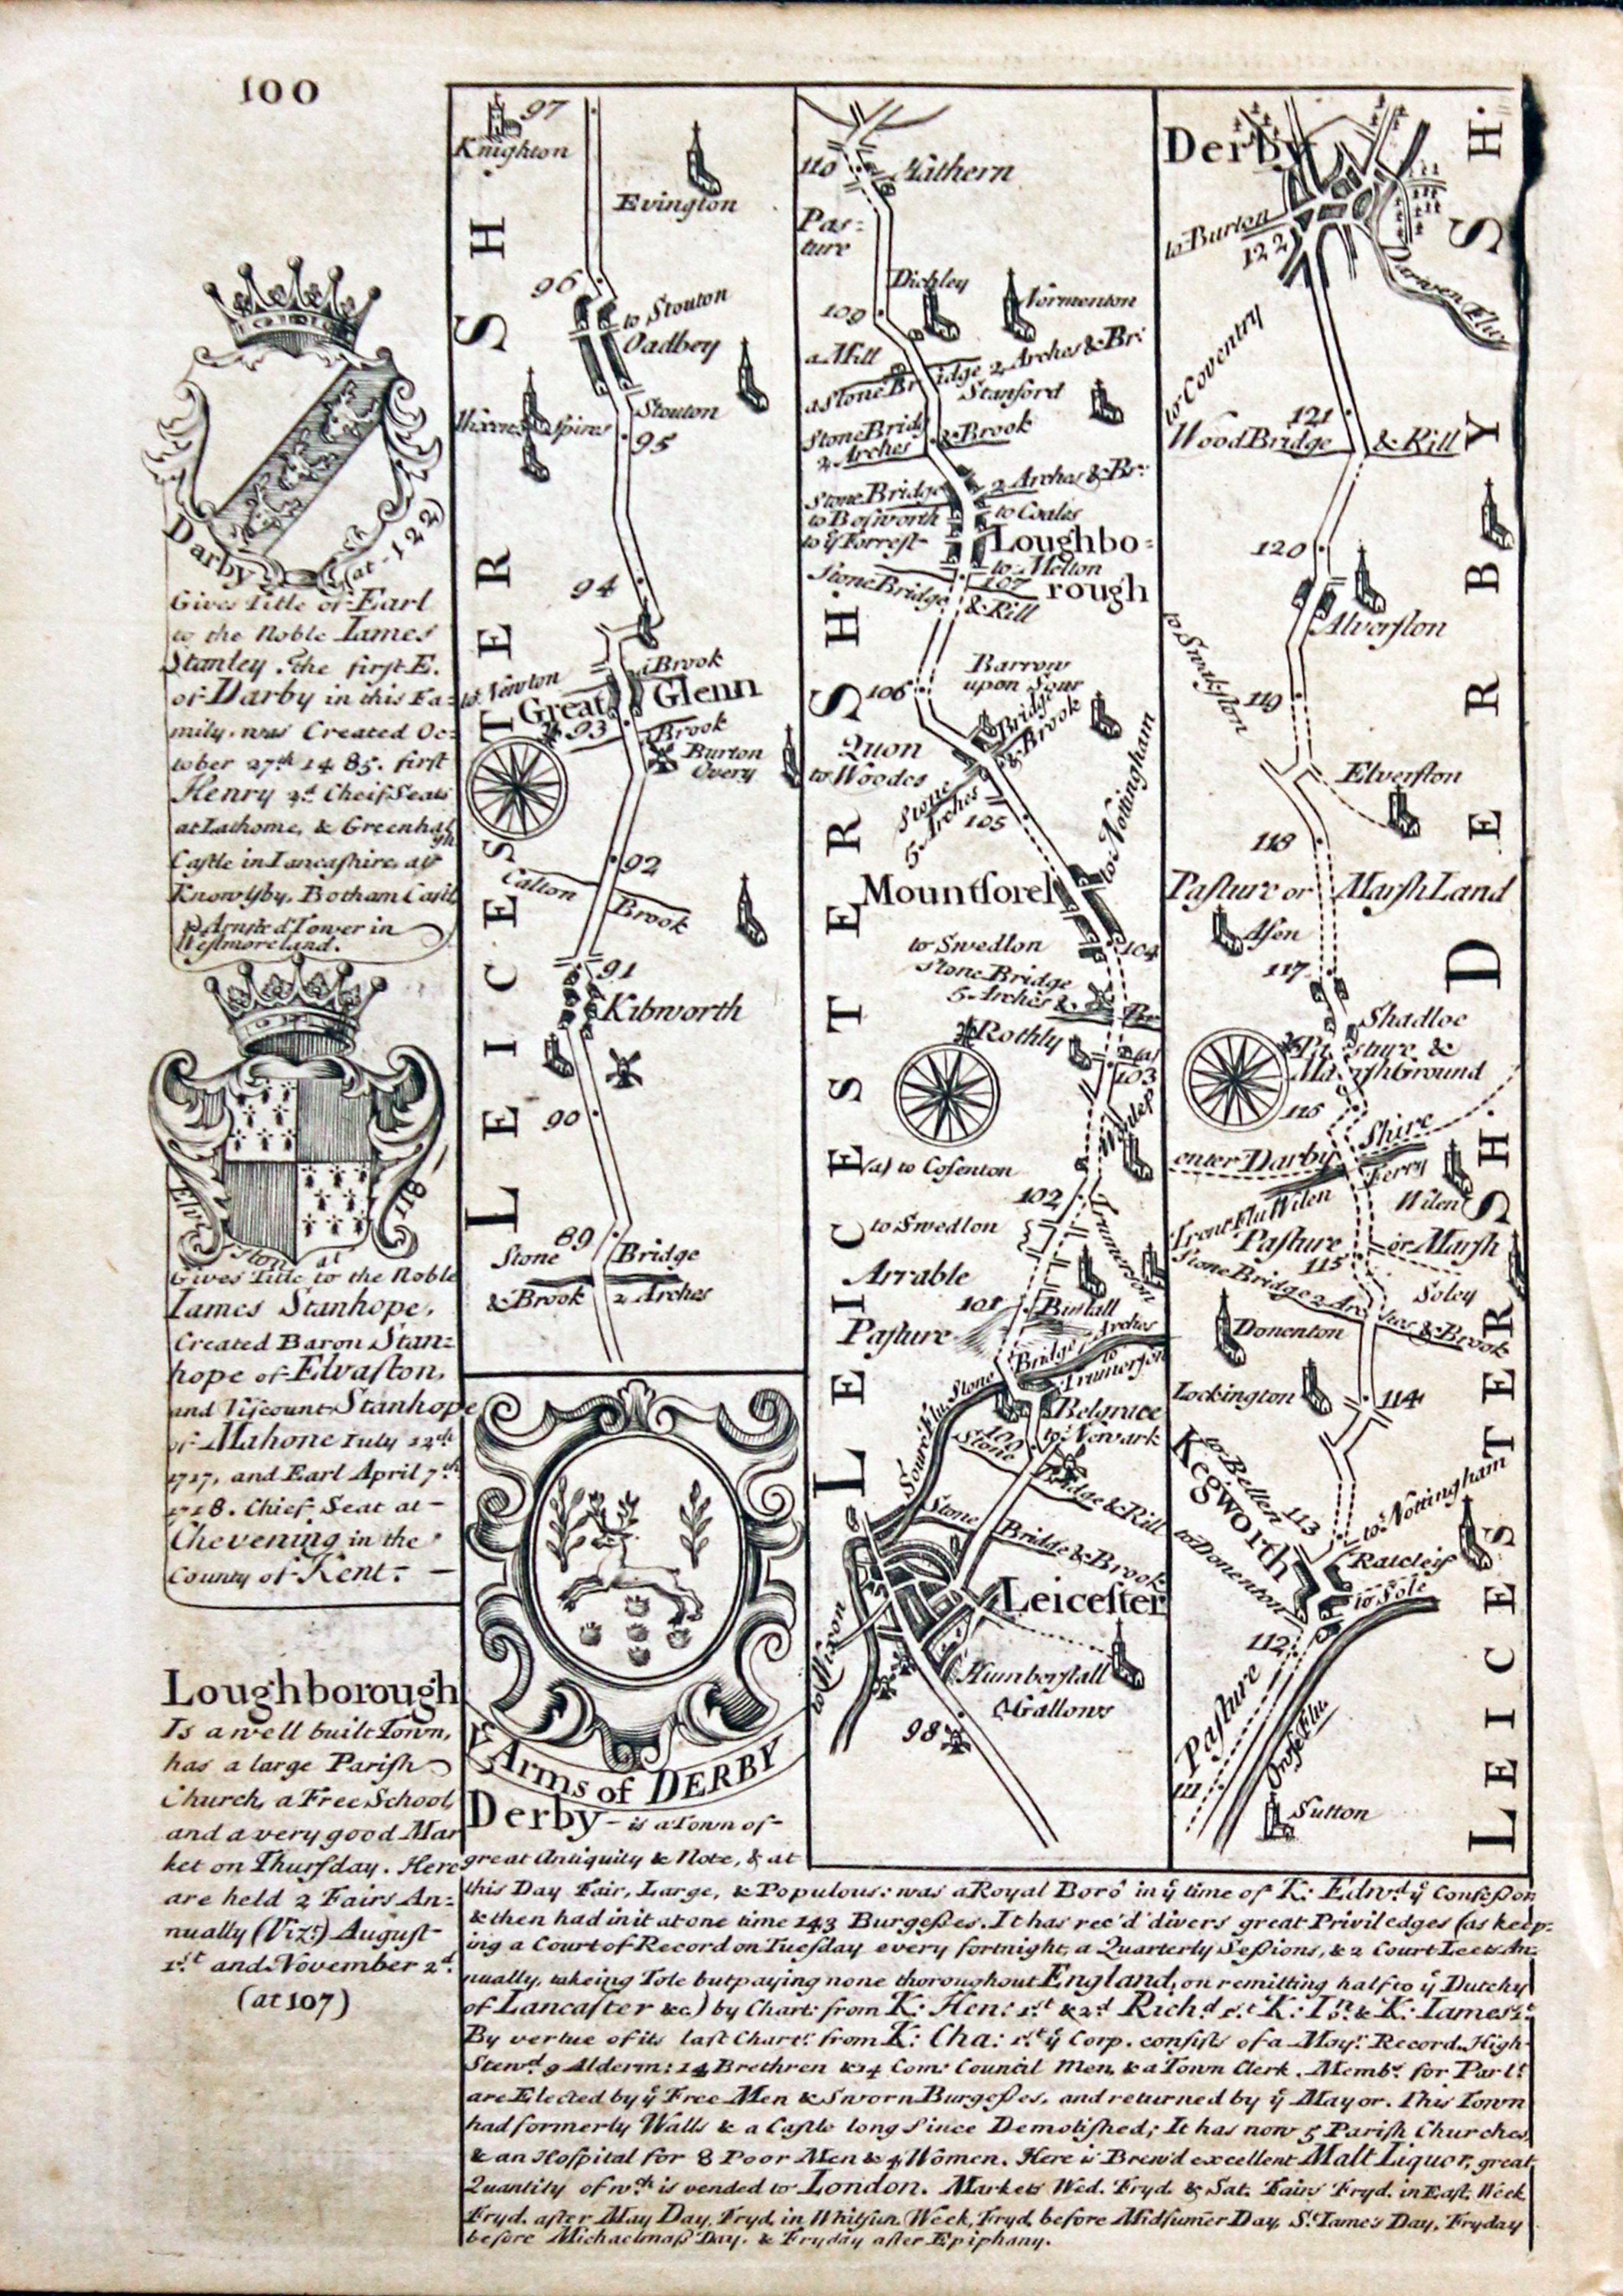 100
Darby (at 122)
Gives Title of Earl
to the Noble Iames
Stanley. The first E.
of Darby in this Fa=
mily was Created Oc=
tober 27th 1485. first
Henry
Cheif Seats
at Lathome, & Greenhalgh
Castle in Lancashire, at
Knowlsby, Botham Castle
& Arnsted Tower in
Westmoreland.
Elvaston at 118
Gives Title to the Noble
Iames Stanhope,
Created Baron Stan=
hope of Elvaston,
and Viscount Stanhope
of Mahone Iuly 12th
1717, and Earl April 7th
1718. Chief Seat at
Chevening in the
County of Kent.
Loughborough
Is a well built Town,
has a large Parish
Church, a Free School,
and a very good Mar
ket on Thursday. Here
are held 2 Fairs An=
nually (Vizt.) August
1st and November 2d.
(at 107)
LEICESTER SH.
97
Knighton
Evington
96
to Stouton
Oadbey
Spires
Stouton
95
94
a Brook
to Newton
Great Glenn
93
a Brook
Burton
Overy
92
Calton Brook
91
Kibworth
90
89
Stone Bridge
& Brook 2 Arches
ye Arms of DERBY
LEICESTER SH.
110
Hathern
Pas=
ture
Dichley
Normenton
109
a Mill
a Stone Bridge 2 Arches & Br:
Stanford
Stone Bridg & Brook
2 Arches
Stone Bridge 2 Arches & Br:
to Bosworth
to Coales
to ye Forrest
Loughbo=
rough
to Melton
107
Stone Bridge & Rill
106
Barrow
upon Sour
Bridge
& Brook
Quon
to Woodes
Stone
5 Arches
105
to Nottingham
Mountsorel
to Swedlon
104
Stone Bridge
5 Arches & Br
Rothly
(a)
103
(a) to Cosenton
102
to Swedlon
Trumerson
Arrable
101
Burstall
Pasture
Stone Bridge Arches
to
Trumerson
Soure Flu.
Belgrace
to Newark
100
Stone Bridge & Rill
Stone Bridge & Brook
Leicester
Humberstall
Gallows
98
LEICESTER SH. DERBY SH.
Derby
to Burton
122
Darwen Flu.
to Coventry
121
Wood Bridge & Rill
120
Alverston
to Swakston
119
Elverston
118
Pasture or Marsh Land
Asen
117
Shadloe
Pasture &
Marsh Ground
116
enter Darby Shire
Ferry
Trent Flu
Wilen
Wilen
Pasture or Marsh
115
Stone Bridge 2 Arches & Brook
Soley
Donenton
Lockington
114
Kegworth
to Belten
113
to Nottingham
to Donenton
Ratcleif
to Sole
112
Pasture
111
Sutton
Derby is a Town of
great Antiquity & Note, & at
this Day Fair, Large, & Populous: was a Royal Boro' in ye time of K: Edwd. ye Confessor
& then had in it at one time 143 Burgesses. It has rec'd divers great Priviledges (as keep=
ing a Court of Record on Tuesday every fortnight, a Quarterly Sessions, & 2 Court Leets An=
nually, takeing Tole but paying none thoroughout England, on remitting half to ye Dutchy
of Lancaster &c) by Chart: from K: Hen: 1st & 2d Richd. 1st K: In. & K: Iames 1st
By vertue of its last Chartr. from K: Cha: 1st ye Corp. consists of a Mayr. Record. High
Stewd. 9 Alderm: 14 Brethren & 14 Com: Council Men, & a Town Clerk. Membs. for Parlt.
are Elected by ye Free Men & Sworn Burgesses, and returned by ye Mayor. This Town
had formerly Walls & a Castle long Since Demolished; It has now 5 Parish Churches,
& an Hospital for 8 Poor Men & 4 Women. Here is Brew'd excellent Malt Liquor, great
Quantity of wch is vended to London. Markets Wed. Fryd. & Sat. Fairs Fryd. in East. Week
Fryd. after May Day, Fryd. in Whitsun Week, Fryd. before Midsumer Day, St. Iames Day, Fryday
before Michaelmass Day, & Fryday after Epiphany.